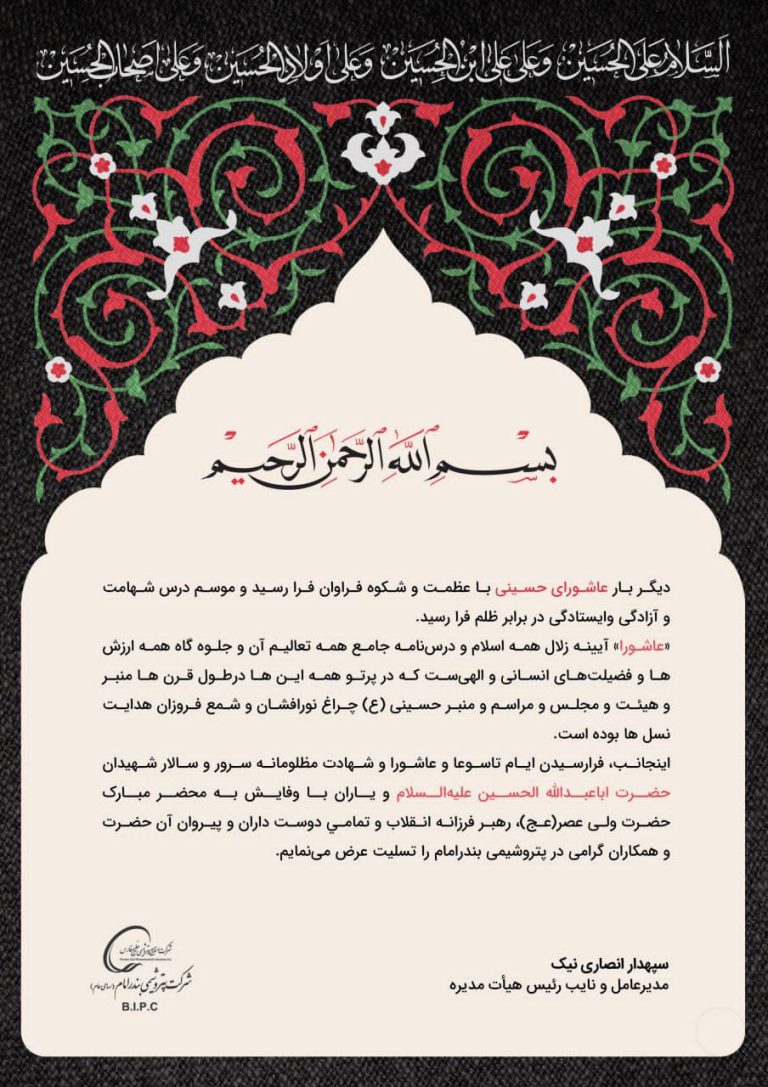 اَلسَّلامُ عَلَی الحُسَیْن وَعَلی عَلیِّ ابْنِ الحُسَیْن وَعَلی اَوْلادِ الْحُسَیْن وَعَلی اَصْحابِ الحُسَین
بِسْمِ اللَّهِ الرَّحْمَنِ الرَّحِيمِ
دیگر بار عاشورای حسینی با عظمت و شکوه فراوان فرا رسید و موسم درس شهامت
و آزادگی وایستادگی در برابر ظلم فرا رسید.
«عاشورا» آیینه زلال همه اسلام و درس‌نامه جامع همه تعالیم آن و جلوه گاه همه ارزش
ها و فضیلت‌های انسانی و الهی‌ست که در پرتو همه این ها درطول قرن ها منبر
و هیئت و مجلس و مراسم و منبر حسینی (ع) چراغ نورافشان و شمع فروزان هدایت
نسل ها بوده است.
اینجانب، فرارسیدن ایام تاسوعا و عاشورا و شهادت مظلومانه سرور و سالار شهیدان
حضرت اباعبدالله الحسین علیه‌السلام و یاران با وفایش به محضر مبارک
حضرت ولی عصر(عج)، رهبر فرزانه انقلاب و تمامي دوست داران و پیروان آن حضرت
و همکاران گرامی در پتروشیمی بندرامام را تسلیت عرض می‌نمایم.
سپهدار انصاری نیک
مدیرعامل و نایب رئیس هیأت مدیره
شرکت صنایع پتروشیمی خلیج فارس
شرکت پتروشیمی بندر امام (سهامی عام)
B.I.P.C